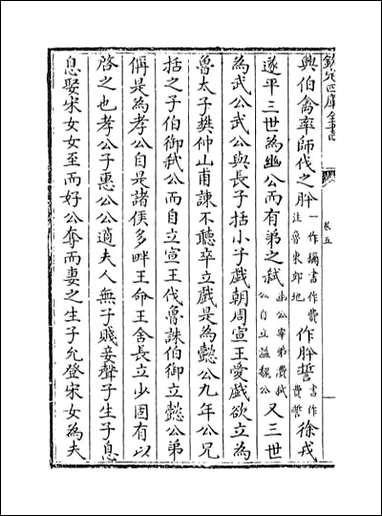 欽定四庫全書
卷五
興伯禽率師伐之肸一作獮書作費注魯東郊地作肸誓書作費誓徐戎
遂平三世為幽公而有弟之弑幽公宰弟濞弑公自立謚魏公又三世
為武公武公與長子括小子戲朝周宣王愛戲欲立為
魯太子樊仲山甫諫不聽卒立戲是為懿公九年公兄
括之子伯御弑公而自立宣王伐魯誅伯御立懿公弟
偁是為孝公自是諸侯多畔王命王舍長立少固有以
啓之也孝公子惠公公適夫人無子賤妾聲子生子息
息娶宋女女至而好公奪而妻之生子允登宋女為夫